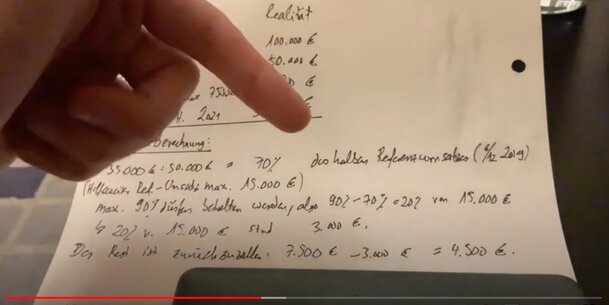 Realität
100.000 €
50.000 €
€
max 7500
2021
berechnung:
35.000 € : 50.000 € = 70% des halben Referenzumsatzes (6/12 2019)
(Halbierter Ref.-Umsatz max. 15.000 €)
max. 90% dürfen behalten werden, also 90% - 70% = 20% von 15.000 €
↳ 20% v. 15.000 € sind 3.000 €.
Der Rest ist zurückzuzahlen: 7.500 € - 3.000 € = 4.500 €.